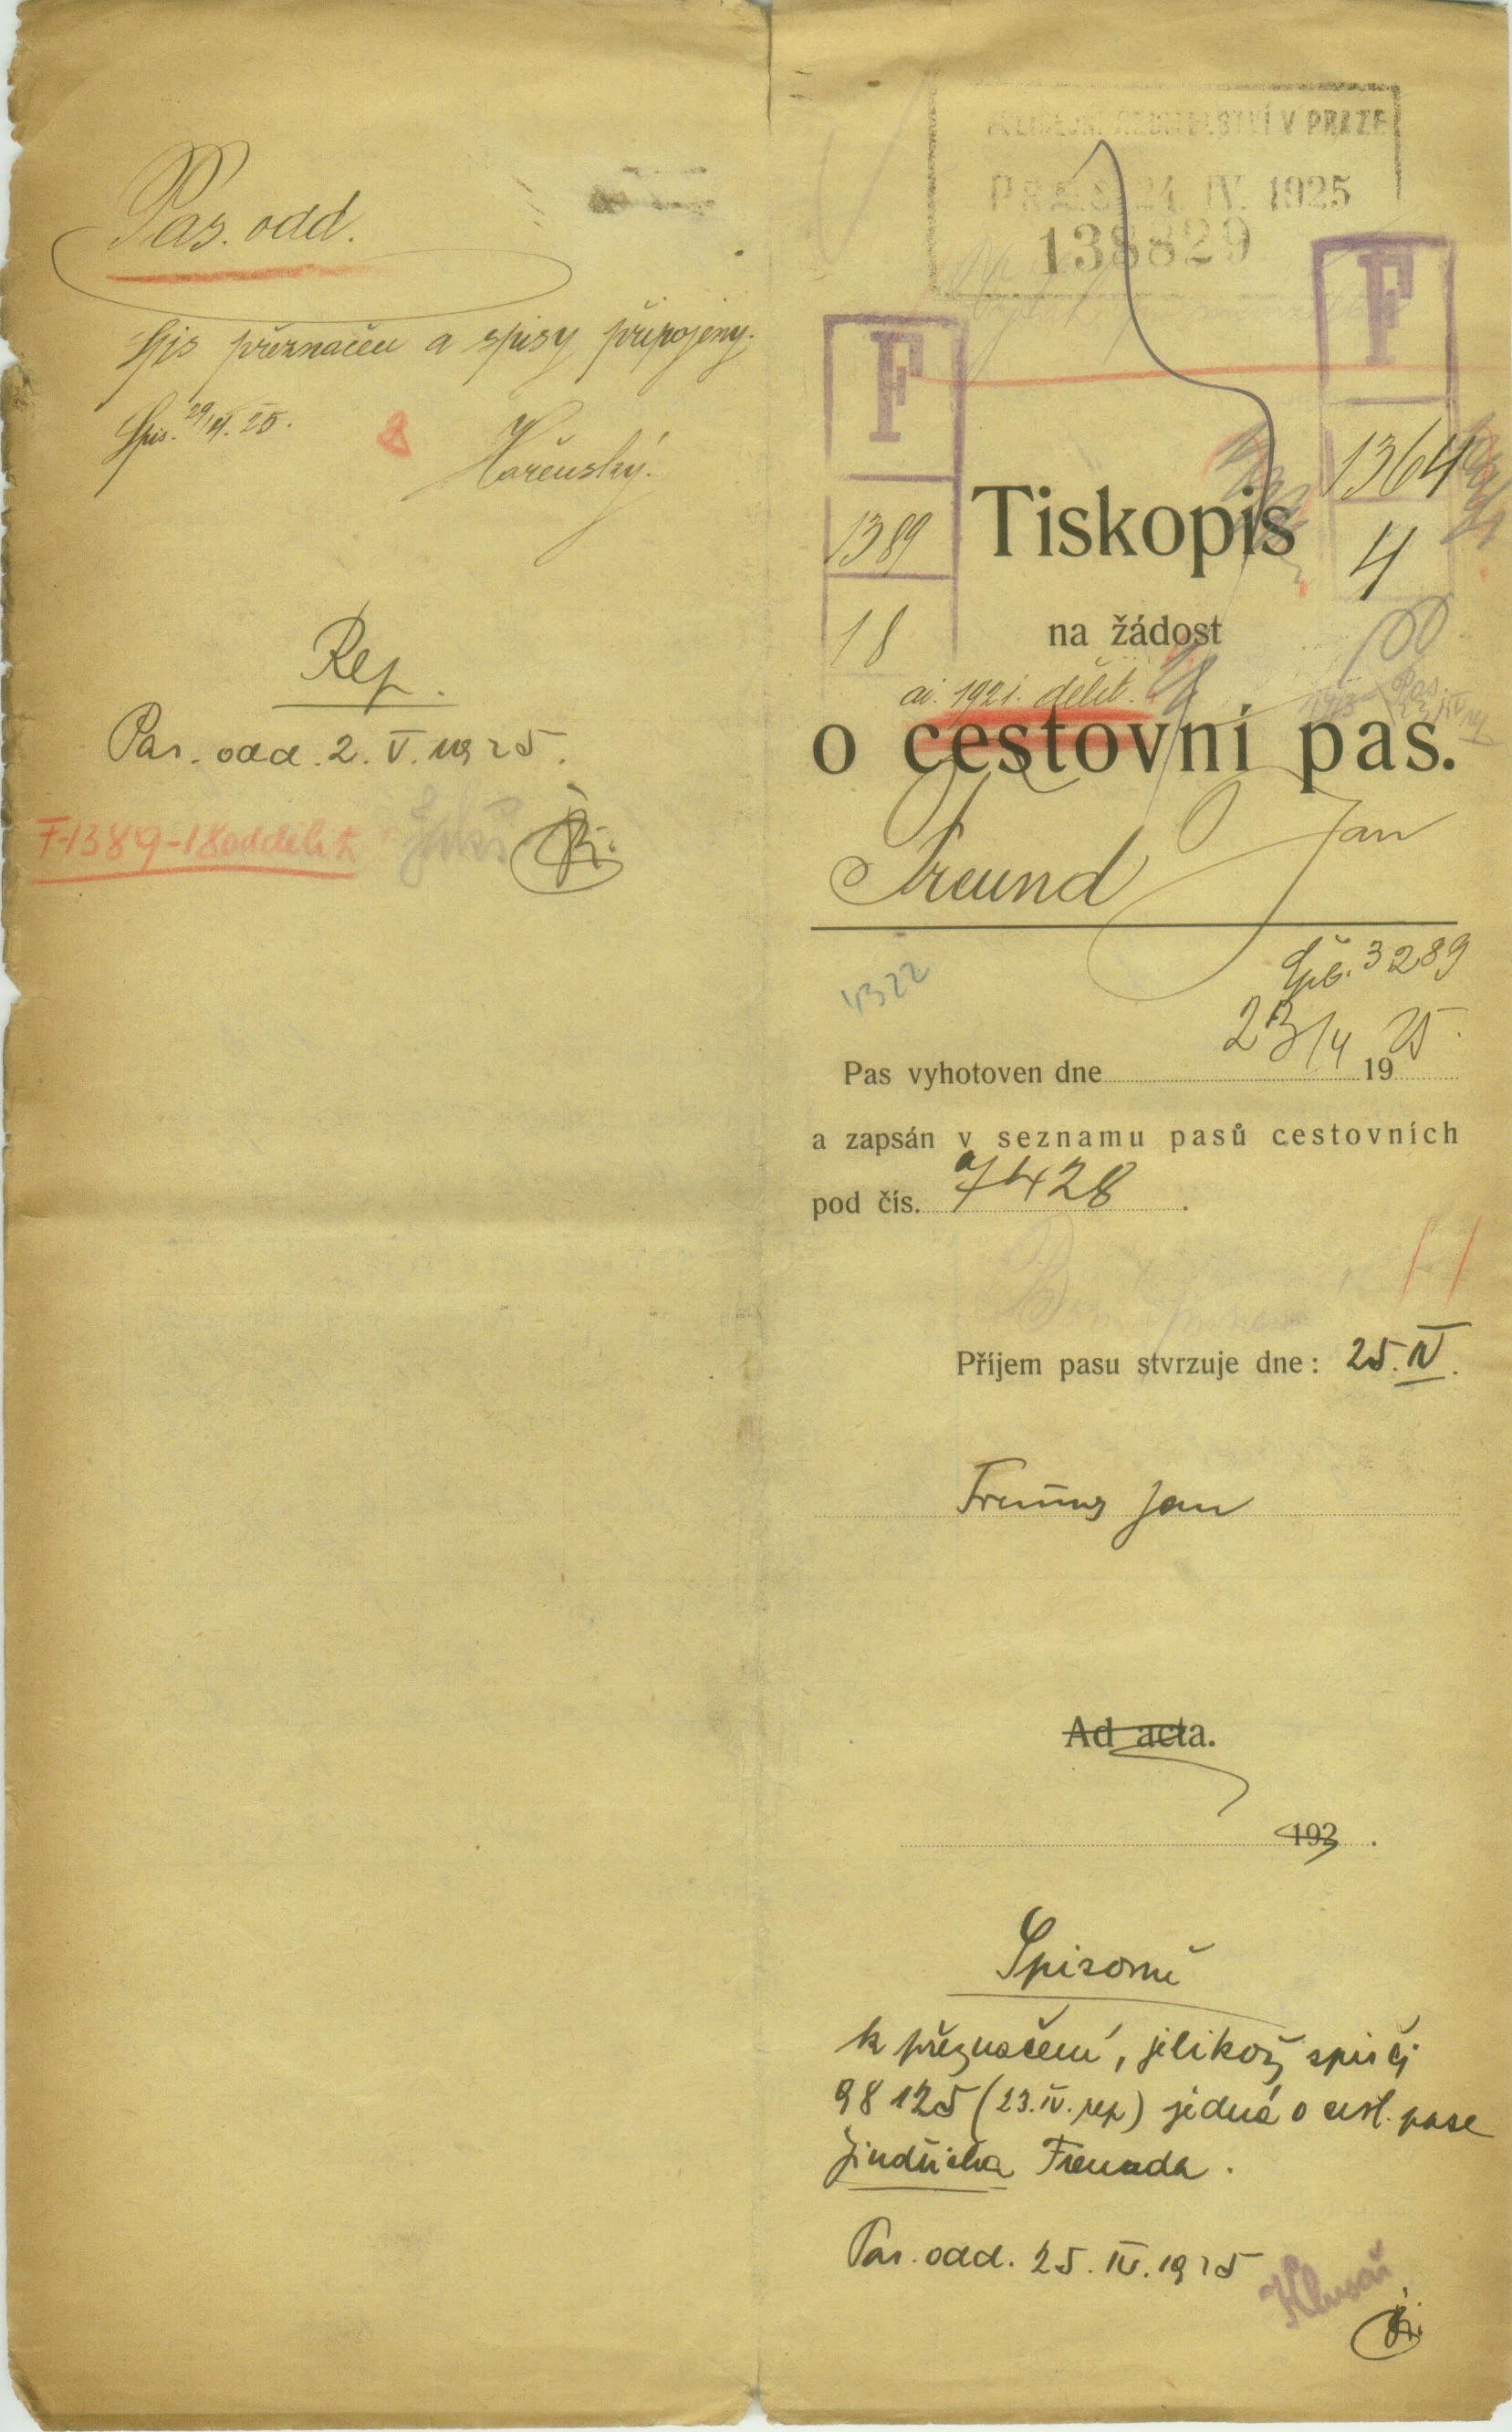 Pas. odd.
spis přeznačen a spisy připojeny.
Spis. 29/4. 25.
8
Rep.
Pas. odd. 2. V. 1925.
F-1389-18 oddělit
POLICEJNÍ ŘEDITELSTVÍ V PRAZE
24. IV. 1925
138829
F
1389
18
F
1364
4
Tiskopis
na žádost
o cestovní pas.
Freund Jan
Spis. 3289
4322
23/4 25.
Pas vyhotoven dne 19
a zapsán v seznamu pasů cestovních
pod čís. 7428.
Příjem pasu stvrzuje dne: 25. IV.
Freund Jan
Ad acta.
192 .
Spisovně
k přeznačení, jelikož spis čj
98125 (23. IV. rep) jedná o cest. pase
Jindřicha Freunda.
Pas. odd. 25. IV. 1925